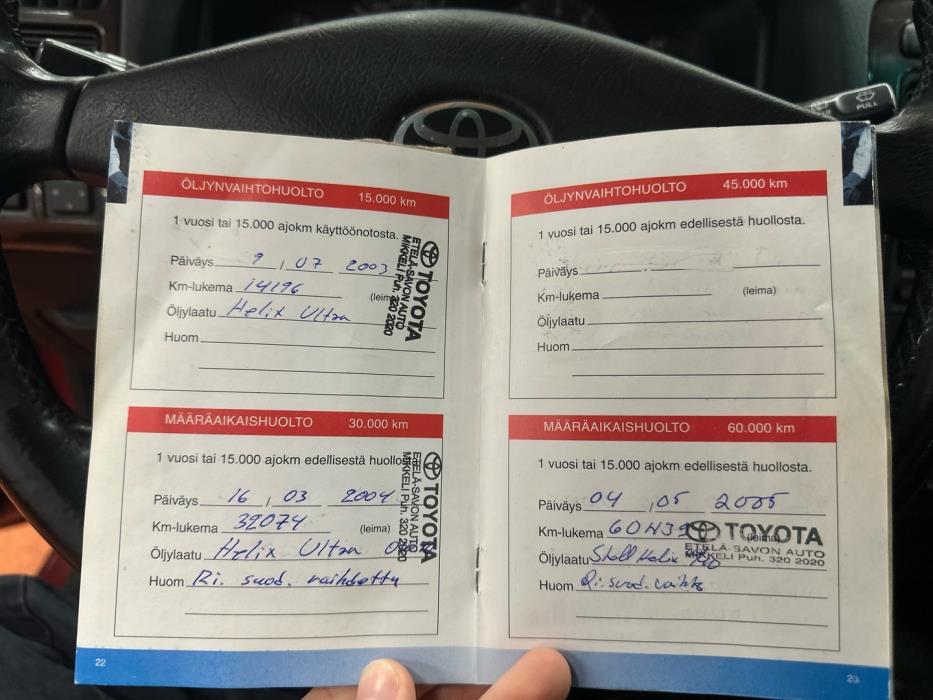 ÖLJYNVAIHTOHUOLTO 15.000 km
1 vuosi tai 15.000 ajokm käyttöönotosta.
Päiväys 9 / 07 2003
Km-lukema 14196
(leima)
Öljylaatu Helix Ultra
Huom
TOYOTA
ETELÄ-SAVON AUTO
MIKKELI Puh. 320 2020
MÄÄRÄAIKAISHUOLTO 30.000 km
1 vuosi tai 15.000 ajokm edellisestä huollosta.
Päiväys 16 / 03 2004
Km-lukema 32074
(leima)
Öljylaatu Helix Ultra
Huom Ri. suod. vaihdettu
TOYOTA
ETELÄ-SAVON AUTO
MIKKELI Puh. 320 2020
22
ÖLJYNVAIHTOHUOLTO 45.000 km
1 vuosi tai 15.000 ajokm edellisestä huollosta.
Päiväys
Km-lukema
(leima)
Öljylaatu
Huom
MÄÄRÄAIKAISHUOLTO 60.000 km
1 vuosi tai 15.000 ajokm edellisestä huollosta.
Päiväys 04 / 05 2005
Km-lukema
(leima)
TOYOTA
ETELÄ-SAVON AUTO
MIKKELI Puh. 320 2020
Öljylaatu Shell Helix
Huom Ri. suod. vaihto
23
PULL